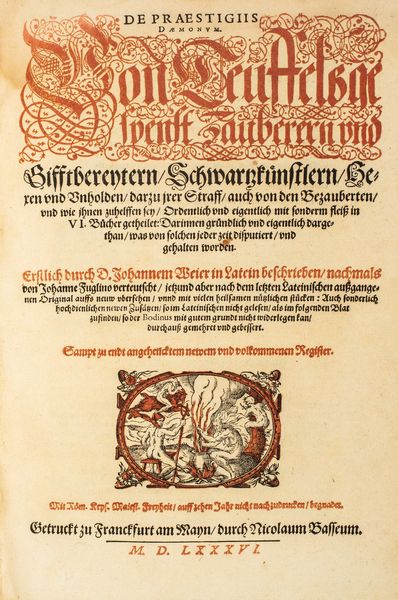 DE PRAESTIGIIS
DÆMONVM.
Von Teuffelsge
spenst Zauberern vnd
Gifftbereytern/ Schwartzkünstlern/ He-
xen vnd Vnholden/ darzu jrer Straff/ auch von den Bezauberten/
vnd wie ihnen zuhelffen sey/ Ordentlich vnd eigentlich mit sonderm fleiß in
VI. Bücher getheilet: Darinnen gründlich vnd eigentlich darge-
than/ was von solchen jeder zeit disputiert/ vnd
gehalten worden.
Erstlich durch D. Johannem Weier in Latein beschrieben/ nachmals
von Johanne Fuglino verteutscht/ jetzund aber nach dem letzten Lateinischen außgange-
nen Original auffs neuw vbersehen/ vnnd mit vielen heilsamen nützlichen stücken: Auch sonderlich
hochdienlichen newen Zusätzen/ so im Lateinischen nicht gelesen/ als im folgenden Blat
zufinden/ so der Bodinus mit gutem grundt nicht widerlegen kan/
durchauß gemehret vnd gebessert.
Sampt zu endt angehencktem newem vnd vollkommenen Register.
Mit Röm. Keys. Maiest. Freyheit/ auff zehen Jahr nicht nachzudrucken/ begnadet.
Getruckt zu Franckfurt am Mayn/ durch Nicolaum Basseum.
M. D. LXXXVI.